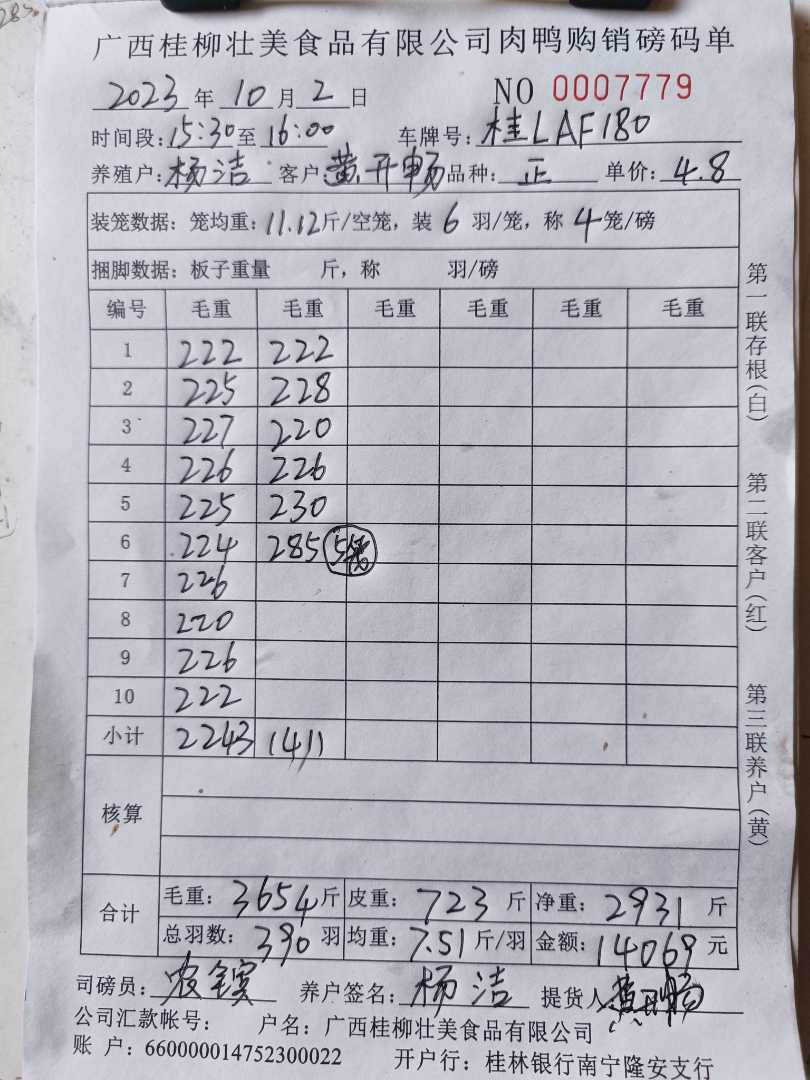 285
广西桂柳壮美食品有限公司肉鸭购销磅码单
2023 年 10 月 2 日 NO 0007779
时间段: 15:30 至 16:00 车牌号: 桂LAF180
养殖户: 杨洁 客户: 黄开畅 品种: 正 单价: 4.8
装笼数据: 笼均重: 11.12 斤/空笼, 装 6 羽/笼, 称 4 笼/磅
捆脚数据: 板子重量 斤, 称 羽/磅
编号 毛重 毛重 毛重 毛重 毛重 毛重
1 222 222
2 225 228
3 227 220
4 226 226
5 225 230
6 224 285 5笼
7 226
8 220
9 226
10 222
小计 2243 1411
核算
合计
毛重: 3654 斤 皮重: 723 斤 净重: 2931 斤
总羽数: 390 羽 均重: 7.51 斤/羽 金额: 14069 元
司磅员: 农 养户签名: 杨洁 提货人 黄开畅
公司汇款帐号: 户名: 广西桂柳壮美食品有限公司
账 户: 660000014752300022 开户行: 桂林银行南宁隆安支行
第一联存根(白)
第二联客户(红)
第三联养户(黄)